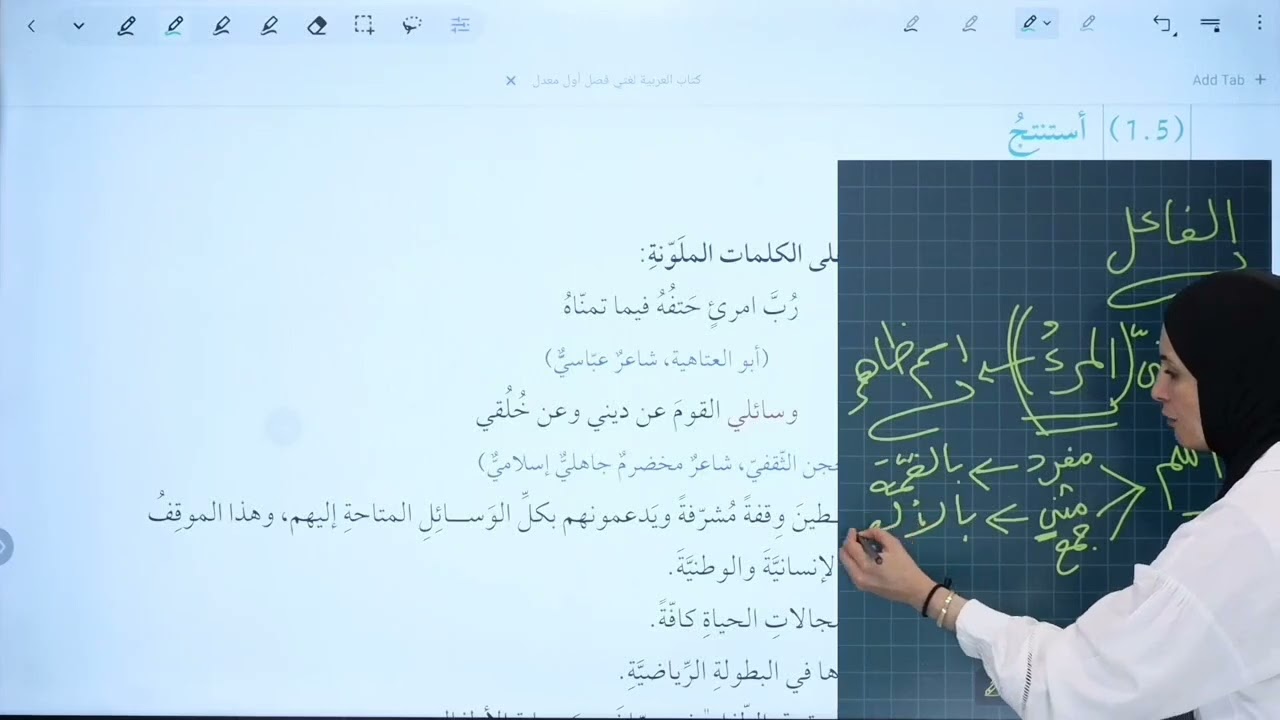 كتاب العربية لغتي فصل أول معدل
Add Tab
(1.5) أستنتجُ
الكلمات الملَوّنةِ:
رُبَّ امرئٍ حَتفُهُ فيما تمنّاهُ
(أبو العتاهية، شاعرٌ عبّاسيٌّ)
وسائلي القومَ عن ديني وعن خُلُقي
الثّقفيّ، شاعرٌ مخضرمٌ جاهليٌّ إسلاميٌّ)
وِقفةً مُشرّفةً ويَدعمونهم بكلِّ الوَســـائِلِ المتاحةِ إليهم، وهذا الموقفُ
والوطنيَّةَ.
الحياةِ كافّةً.
في البطولةِ الرِّياضيَّةِ.
الفاعل
(المرءُ) ← اسم ظاهر
مفرد ← بالضمّة
مثنى ← بالألف
جمع